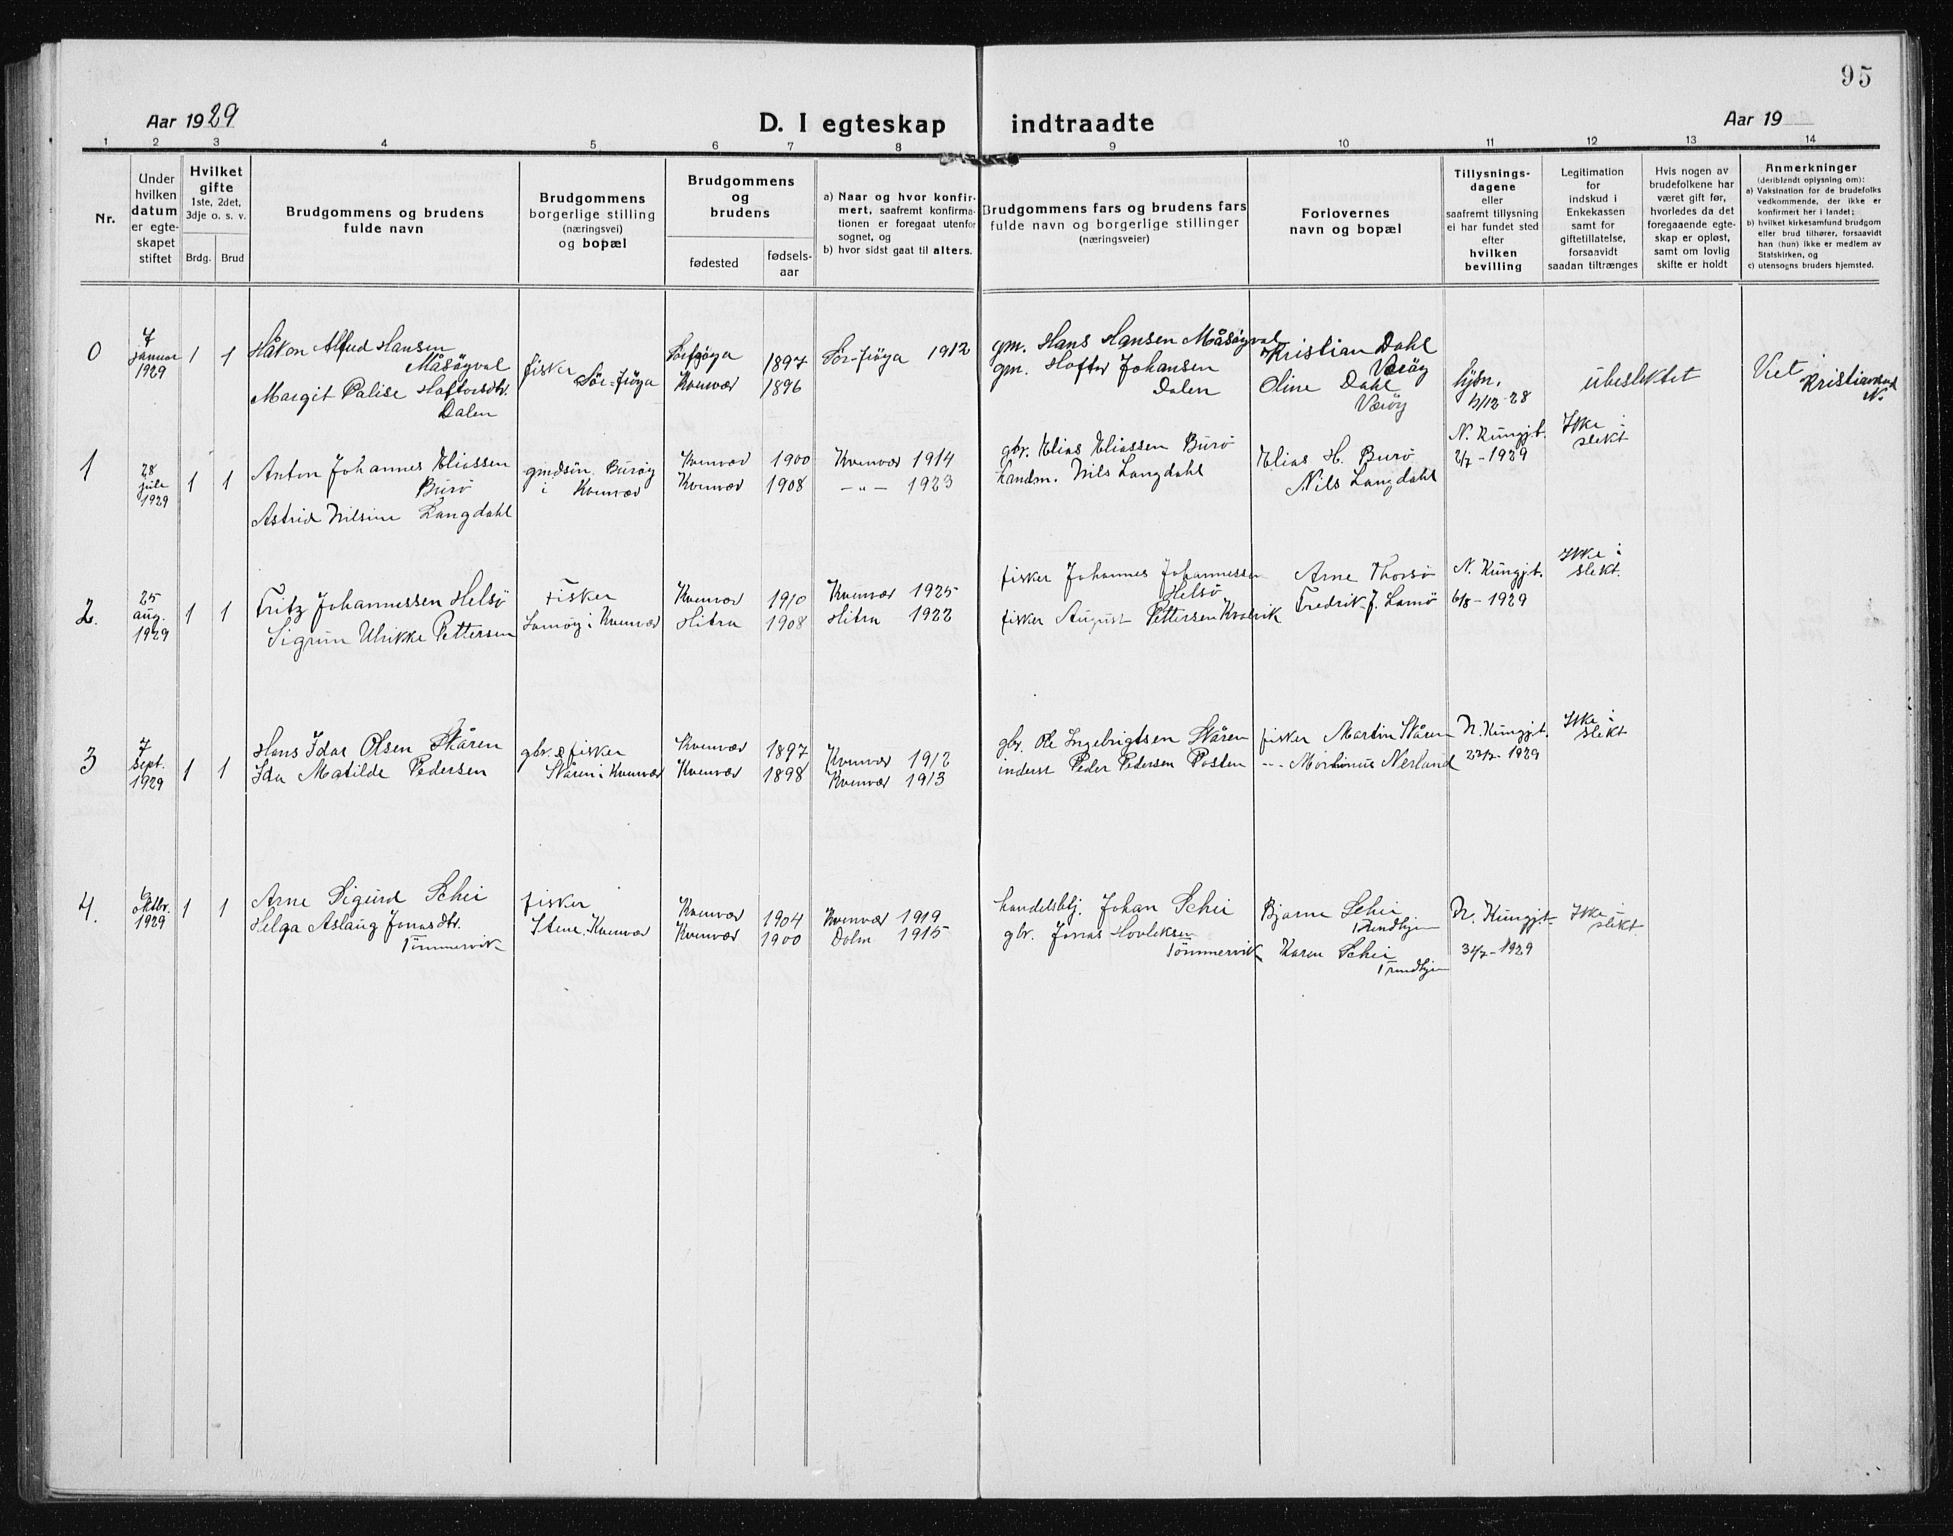 95
Aar 1929
D. I egteskap indtraadte
Aar 19
1 2 3 4 5 6 7 8 9 10 11 12 13 14
Nr.
Under
hvilken
datum
er egte-
skapet
stiftet
Hvilket
gifte
1ste, 2det,
3dje o. s. v.
Brdg. Brud
Brudgommens og brudens
fulde navn
Brudgommens
borgerlige stilling
(næringsvei)
og bopæl
Brudgommens
og
brudens
fødested
fødsels-
aar
a) Naar og hvor konfir-
mert, saafremt konfirma-
tionen er foregaat utenfor
sognet, og
b) hvor sidst gaat til alters.
Brudgommens fars og brudens fars
fulde navn og borgerlige stillinger
(næringsveier)
Forlovernes
navn og bopæl
Tillysnings-
dagene
eller
saafremt tillysning
ei har fundet sted
efter
hvilken
bevilling
Legitimation
for
indskud i
Enkekassen
samt for
giftetillatelse,
forsaavidt
saadan tiltrænges
Hvis nogen av
brudefolkene har
været gift før,
hvorledes da det
foregaaende egte-
skap er opløst,
samt om lovlig
skifte er holdt
Anmerkninger
(deriblandt oplysning om):
a) Vaksination for de brudefolks
vedkommende, der ikke er
konfirmert her i landet;
b) hvilket kirkesamfund brudgom
eller brud tilhører, forsaavidt
han (hun) ikke er medlem av
Statskirken, og
c) utensogns bruders hjemsted.
0
7
januar
1929
1 1
Håkon Alfred Hansen
Måsøyval
Margit Palise Hoftorsdtr.
Dalen
fisker
Sør-Frøya
Sørfrøya 1897
Kvenvær 1896
Sør-Frøya 1912
gm. Hans Hansen Måsøyval
gm. Hoftor Johansen
Dalen
Kristian Dahl
Værøy
Oline Dahl
Værøy
lysn.
4/12-28
ubeslektet
Viet i
Kristiansund
N.
1
28
juli
1929
1 1
Anton Johannes Eliassen
Burø
Astrid Nilsine Langdahl
gmdsøn, Burøy
i Kvenvær
Kvenvær 1900
Kvenvær 1908
Kvenvær 1914
-"- 1923
gbr. Elias Eliassen Burø
handm. Nils Langdahl
Elias H. Burø
Nils Langdahl
N. Kungjt.
2/7-1929
Ikke i
slekt
2.
25
aug.
1929
1 1
Fritz Johannessen Helsø
Sigrun Ulrikke Pettersen
Fisker
Lamøy i Kvenvær
Kvenvær 1910
Hitra 1908
Kvenvær 1925
Hitra 1922
fisker Johannes Johannessen
Helsø
fisker August Pettersen Kvalvik
Arne Thorsø
Fredrik J. Lamø
N. Kungjt.
6/8-1929
Ikke i
slekt.
3
7
Sept.
1929
1 1
Hans Idar Olsen Skåren
Ida Matilde Pedersen
gbr. & fisker
Skåren i Kvenvær
Kvenvær 1897
Kvenvær 1898
Kvenvær 1912
Kvenvær 1913
gbr. Ole Ingebrigtsen Skåren
inderst Peder Pedersen Posten
fisker Martin Skåren
-"- Martinus Nesland
N. Kungjt.
22/7-1929
Ikke i
slekt
4.
6
oktbr.
1929
1 1
Arne Sigurd Schei
Helga Aslaug Jonasdtr.
Tømmervik
fisker
Stene, Kvenvær
Kvenvær 1904
Kvenvær 1900
Kvenvær 1919
Dolm 1915
handelsbtj. Johan Schei
gbr. Jonas Hovleksen
Tømmervik
Bjarne Schei
Trndhjem
Karen Schei
Trndhjem
N. Kungjt.
31/7-1929
Ikke i
slekt